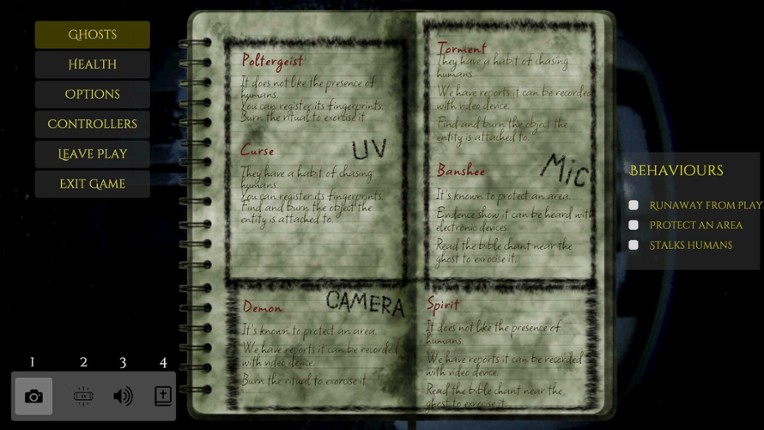 GHOSTS
HEALTH
OPTIONS
CONTROLLERS
LEAVE PLAY
EXIT GAME
1 2 3 4
Poltergeist
It does not like the presence of
humans.
You can register its fingerprints.
Burn the ritual to exorcise it
UV
Curse
They have a habit of chasing
humans.
You can register its fingerprints.
Find and burn the object the
entity is attached to.
CAMERA
Demon
It's known to protect an area.
We have reports it can be recorded
with video device.
Burn the ritual to exorcise it
Torment
They have a habit of chasing
humans.
We have reports it can be recorded
with video device.
Find and burn the object the
entity is attached to.
Mic
Banshee
It's known to protect an area.
Evidence show it can be heard with
electronic devices.
Read the bible chant near the
ghost to exorcise it.
Spirit
It does not like the presence of
humans.
We have reports it can be recorded
with video device.
Read the bible chant near the
ghost to exorcise it.
BEHAVIOURS
RUNAWAY FROM PLAY
PROTECT AN AREA
STALKS HUMANS